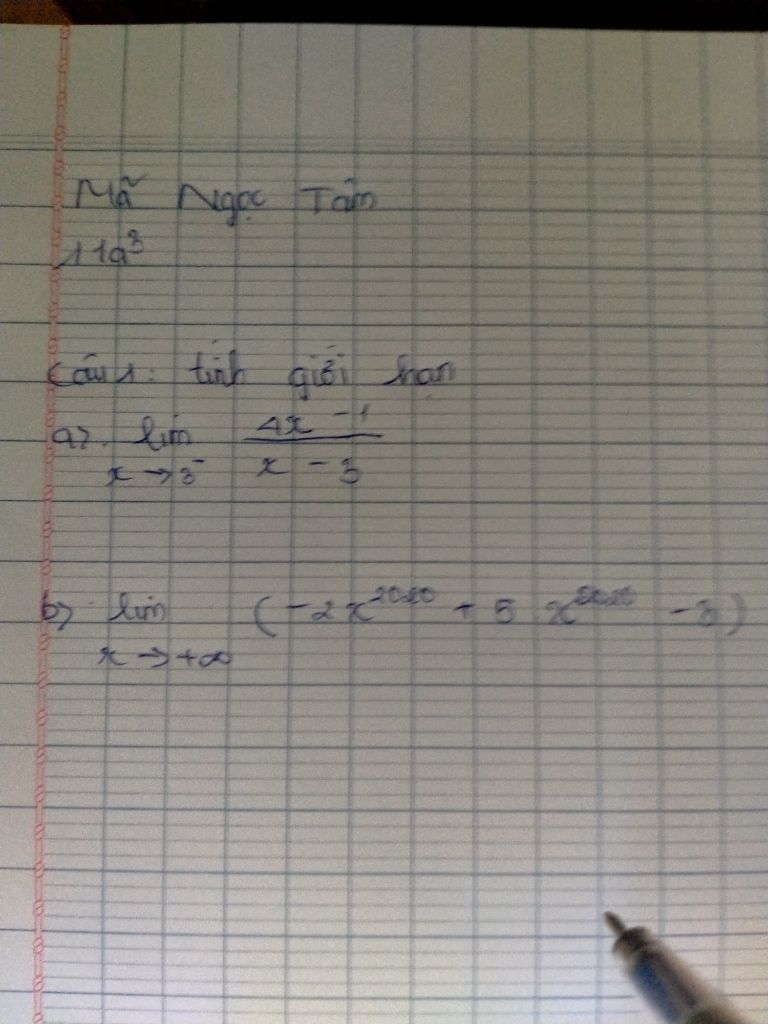 Mã Ngọc Tâm
11a³
Câu 1: tính giới hạn
a). lim 4x - 1
x → 3⁻ x - 3
b). lim (-2x²⁰²⁰ + 5 x - 3)
x → +∞